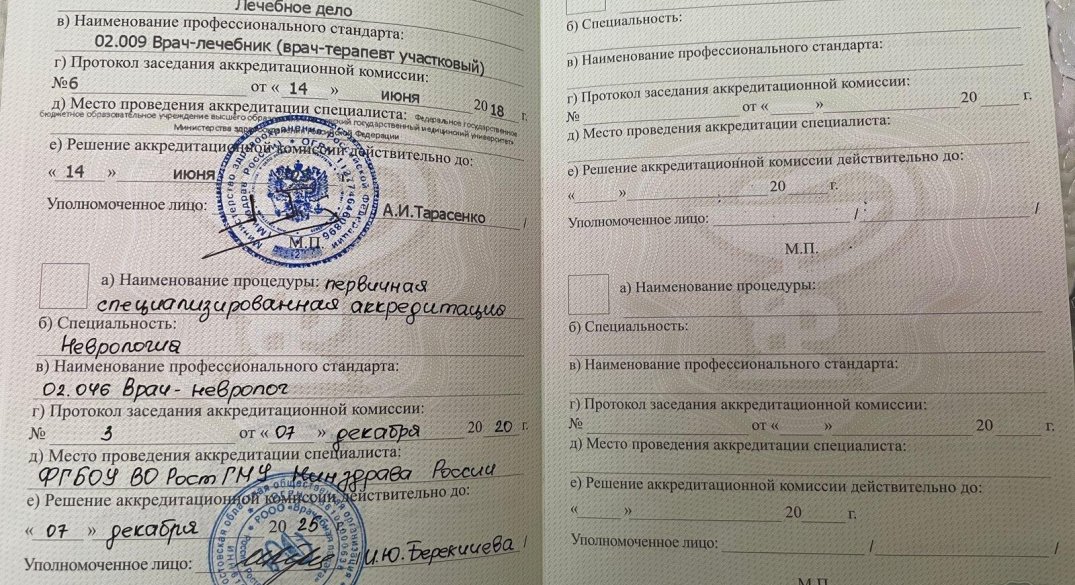 Лечебное дело
в) Наименование профессионального стандарта:
02.009 Врач-лечебник (врач-терапевт участковый)
г) Протокол заседания аккредитационной комиссии:
№6 от « 14 » июня 2018 г.
д) Место проведения аккредитации специалиста: Федеральное государственное
бюджетное образовательное учреждение высшего государственный медицинский университет
Министерства Российской Федерации
е) Решение аккредитационной комиссии действительно до:
« 14 » июня
Уполномоченное лицо: А.И.Тарасенко /
М.П.
а) Наименование процедуры: первичная
специализированная аккредитация
б) Специальность:
Неврология
в) Наименование профессионального стандарта:
02.046 Врач-невролог
г) Протокол заседания аккредитационной комиссии:
№ 3 от « 07 » декабря 2020 г.
д) Место проведения аккредитации специалиста:
ФГБОУ ВО РостГМУ Минздрава России
е) Решение аккредитационной комиссии действительно до:
« 07 » декабря 2025
Уполномоченное лицо: /
б) Специальность:
в) Наименование профессионального стандарта:
г) Протокол заседания аккредитационной комиссии:
№ от « » 20 г.
д) Место проведения аккредитации специалиста:
е) Решение аккредитационной комиссии действительно до:
« » 20 г.
Уполномоченное лицо: / /
М.П.
а) Наименование процедуры:
б) Специальность:
в) Наименование профессионального стандарта:
г) Протокол заседания аккредитационной комиссии:
№ от « » 20 г.
д) Место проведения аккредитации специалиста:
е) Решение аккредитационной комиссии действительно до:
« » 20 г.
Уполномоченное лицо: / /
М.П.